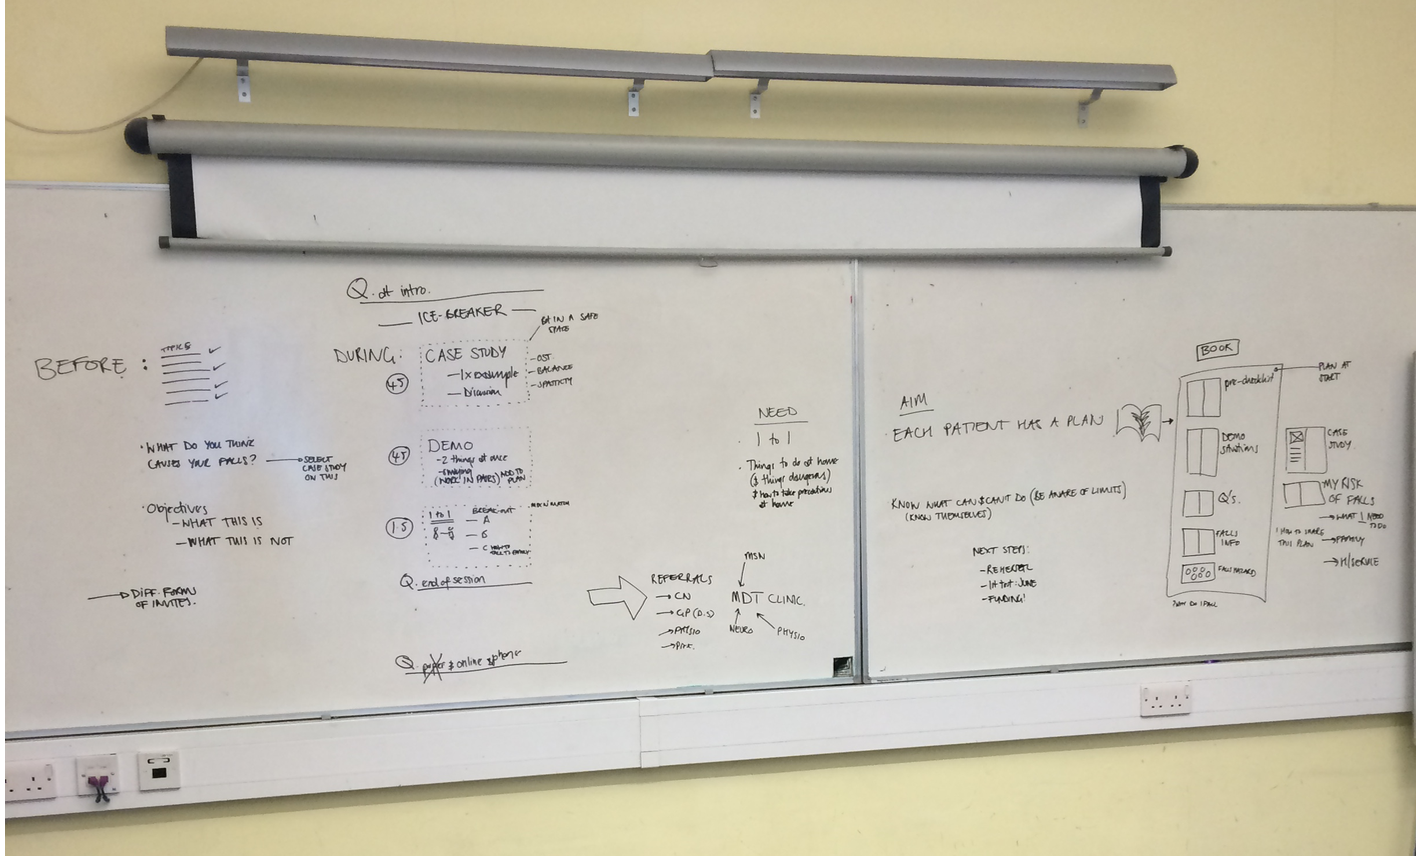 BEFORE :
TOPICS
WHAT DO YOU THINK
CAUSES YOUR FALLS?
SELECT
CASE STUDY
ON THIS
Objectives
- WHAT THIS IS
- WHAT THIS IS NOT
DIFF. FORMS
OF INVITES.
Q. at intro.
ICE-BREAKER
IN A SAFE
SPACE
DURING:
45
CASE STUDY
- 1x example
- Discussion
- OST
- BALANCE
- SPASTICITY
45
DEMO
- 2 things at once
(WORK IN PAIRS) ADD TO
PLAN
MIX N MATCH
15
1 to 1
BREAK-OUT
- A
- B
- C
Q. end of session
Q. paper & online & phone
REFERRALS
CN
GP (D.S)
PHYSIO
MSN
MDT CLINIC.
NEURO
PHYSIO
NEED
1 to 1
Things to do at home
(& things dangerous)
& how to take precautions
at home
AIM
EACH PATIENT HAS A PLAN
KNOW WHAT CAN & CANT DO (BE AWARE OF LIMITS)
(KNOW THEMSELVES)
NEXT STEPS:
- REHERSEL
- 1st test: JUNE
- FUNDING!
BOOK
pre-checklist
PLAN AT
START
DEMO
situations
Q's.
FALLS
INFO
FALLS HAZARD
HOW DO I FALL
CASE
STUDY.
MY RISK
OF FALLS
WHAT I NEED
TO DO
HOW TO SHARE
THIS PLAN
FAMILY
H/SERVICE